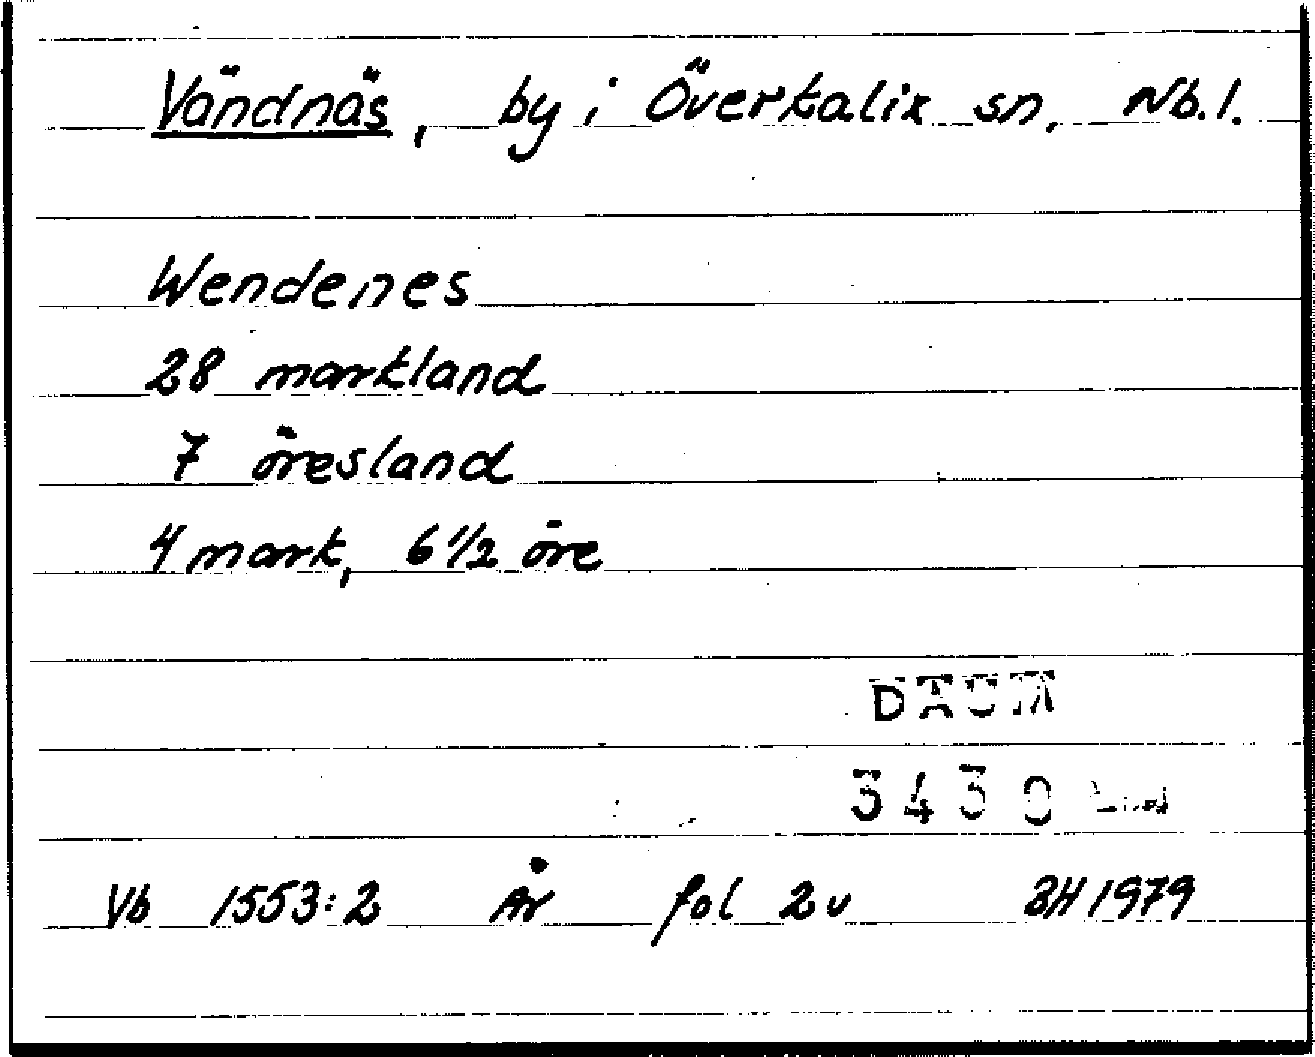 Vändnäs, by i Överkalix sn, Nb.l.
Wendenes
28 markland
7 öresland
4 mark, 6 1/2 öre
DAUM
3430
Vb 1553:2 År fol 2v BH 1979